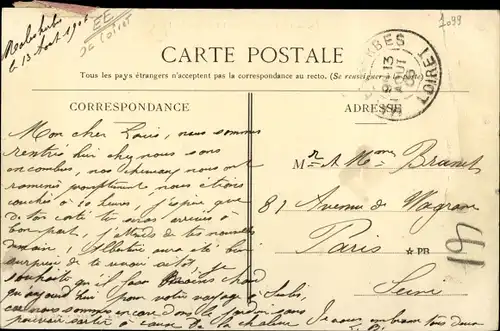 Malesherbes
le 13 Août 1906
EE
DE Loiret
7099
CARTE POSTALE
Tous les pays étrangers n'acceptent pas la correspondance au recto. (Se renseigner à la poste)
MALESHERBES
13 AOUT
LOIRET
CORRESPONDANCE
ADRESSE
Mon cher Louis, nous sommes
rentrés hier chez nous sans
encombre, nos chevaux nous ont
ramenés promptement nous étions
couchés à 10 heures, j'espère que
de ton coté tu seras arrivé à
bon port, j'attends de tes nouvelles
demain, Albertine aura été bien
surprise de te
souhaite qu'il fasse moins chaud
qu'aujourd'hui pour votre voyage
nous sommes encore dans le jardin sans
pouvoir sortir à cause de la chaleur Je vous embrasse tous deux
Mr et Mme Brunet
81 Avenue de Wagram
Paris
PB
Seine
91